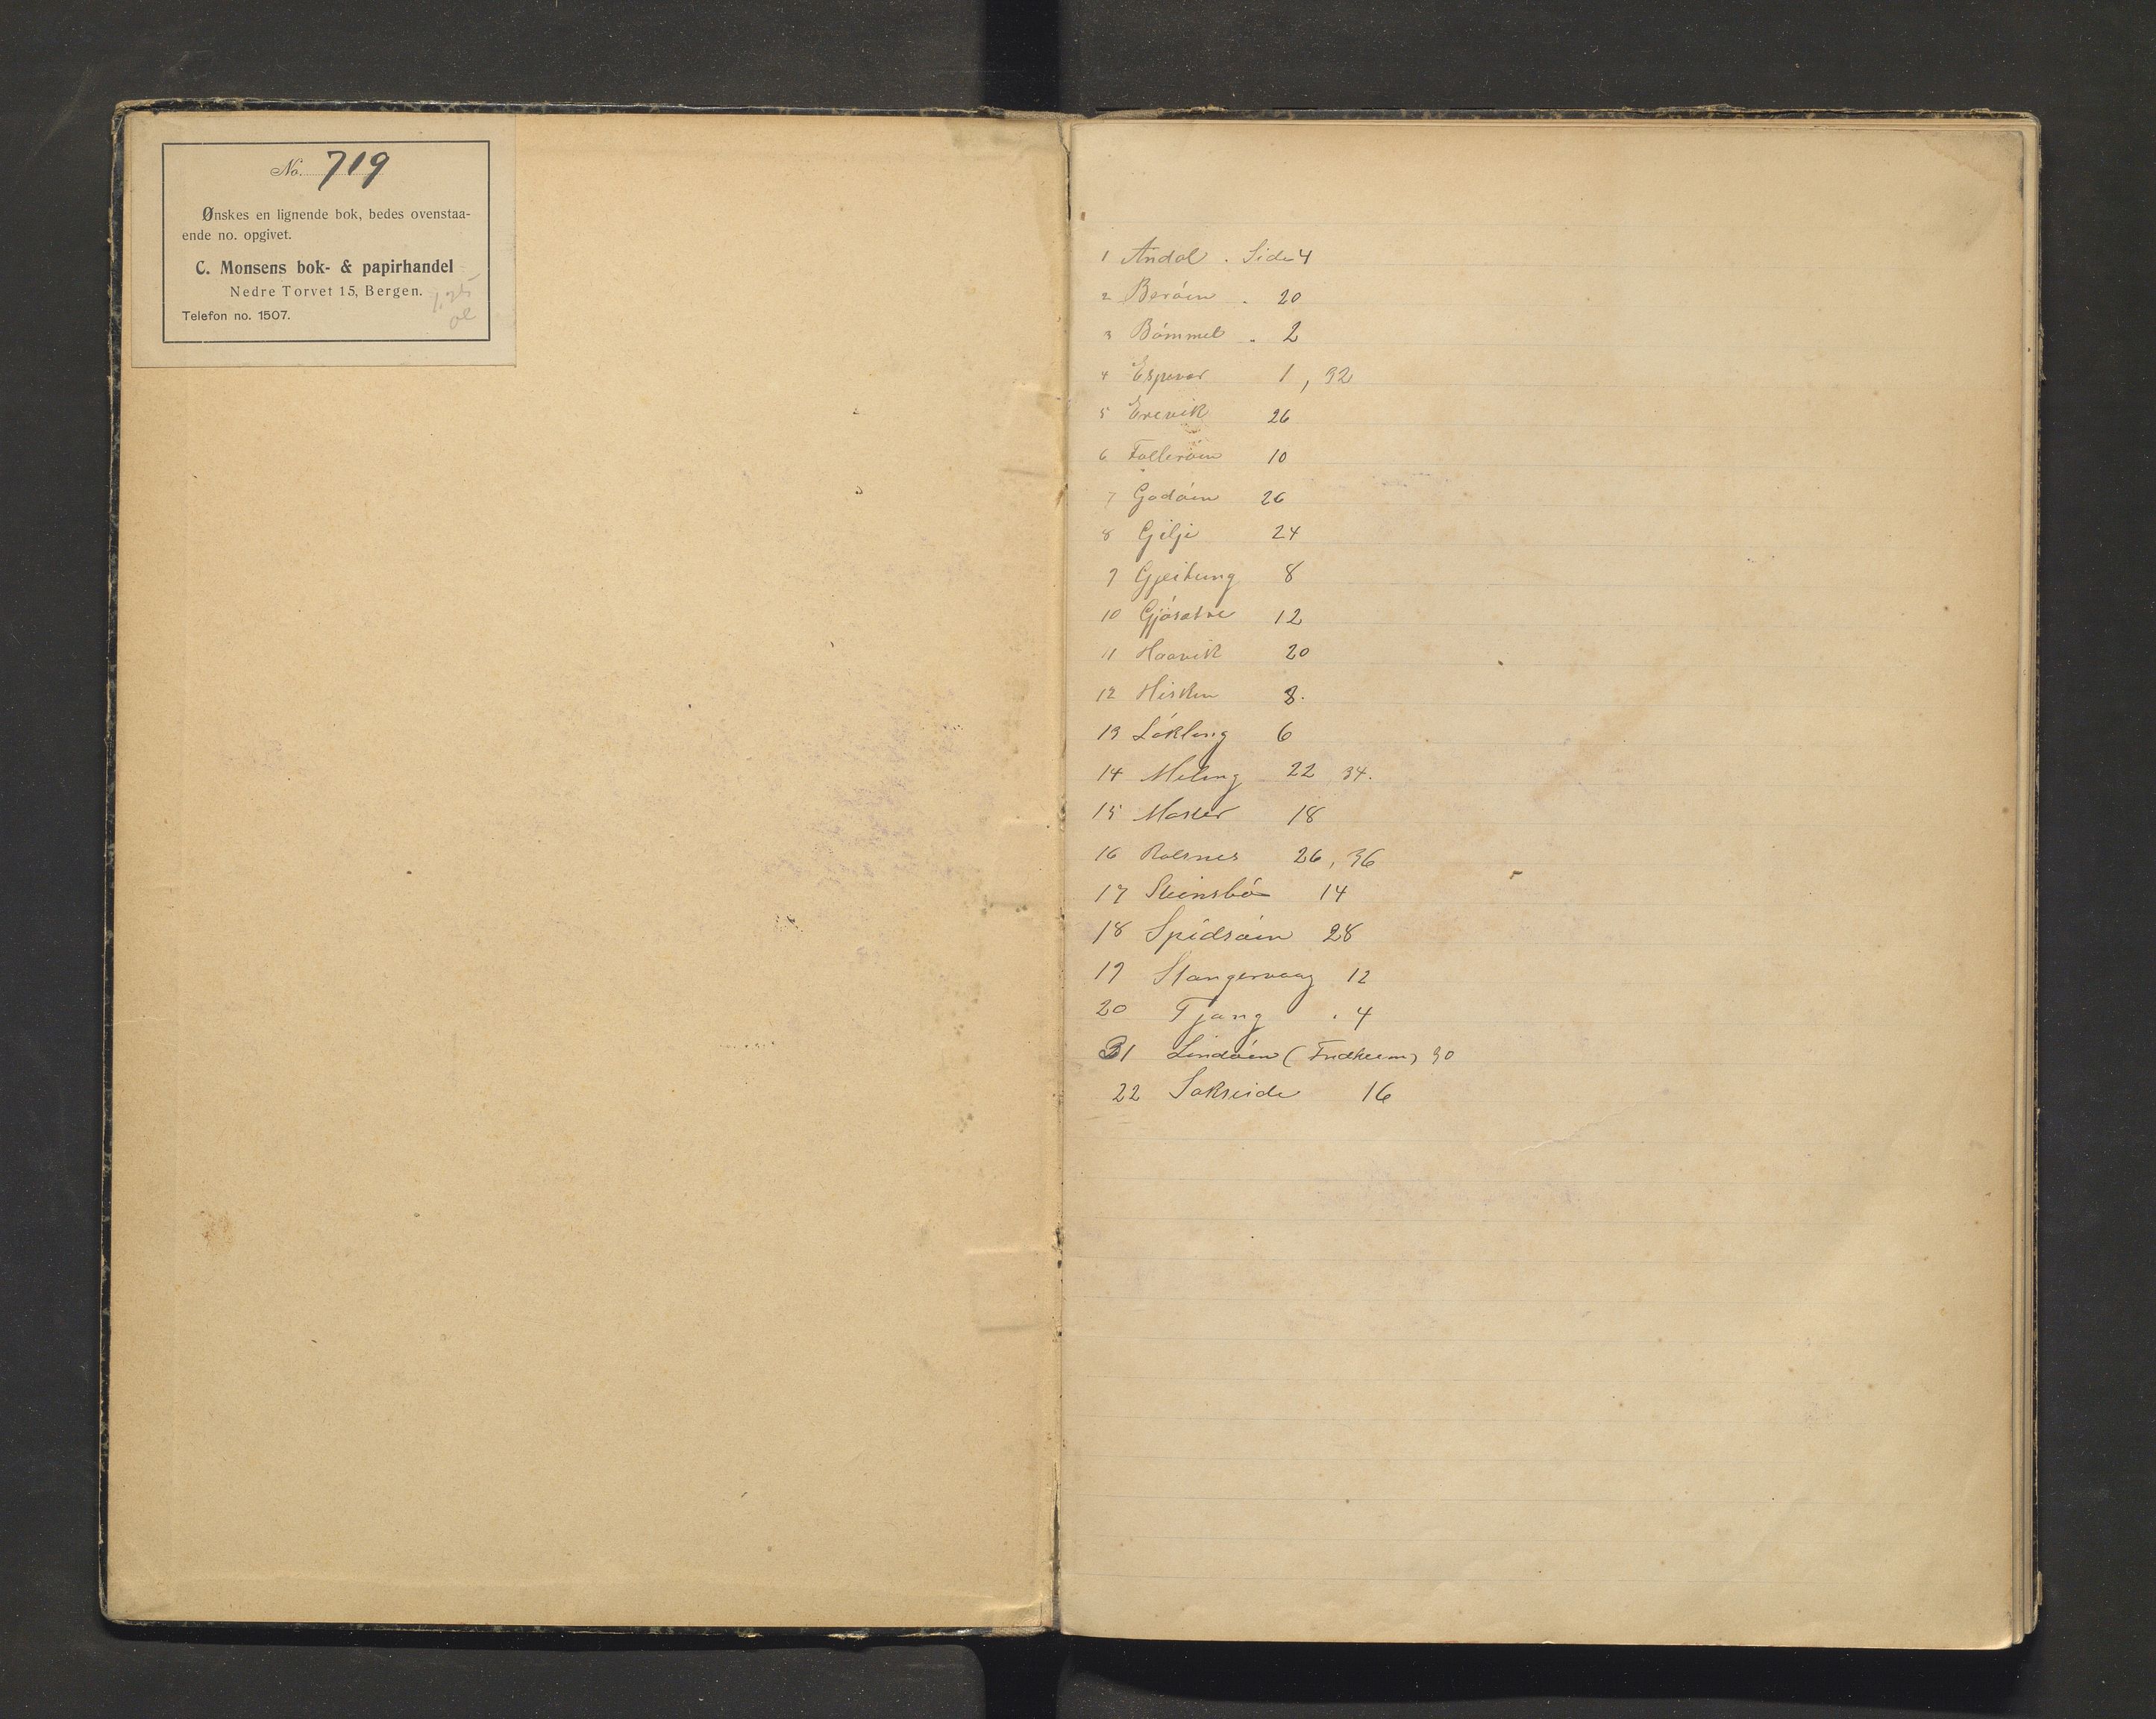 No. 719
Ønskes en lignende bok, bedes ovenstaa-
ende no. opgivet.
C. Monsens bok- & papirhandel
Nedre Torvet 15, Bergen.
Telefon no. 1507.
1 Andal . Side 4
2 Beróen . 20
3 Bómmel . 2
4 Espevær 1, 32
5 Erevik 26
6 Folleróen 10
7 Godóen 26
8 Gjilje 24
9 Gjeitung 8
10 Gjósætre 12
11 Haavik 20
12 Hisken 8.
13 Lókling 6
14 Meling 22 34.
15 Moster 18
16 Rolsnes 26, 36
17 Steinsbó 14
18 Spidsóen 28
19 Stangervaag 12
20 Tjong . 4
21 Lindóen (Fridheim) 30
22 Sakseide 16